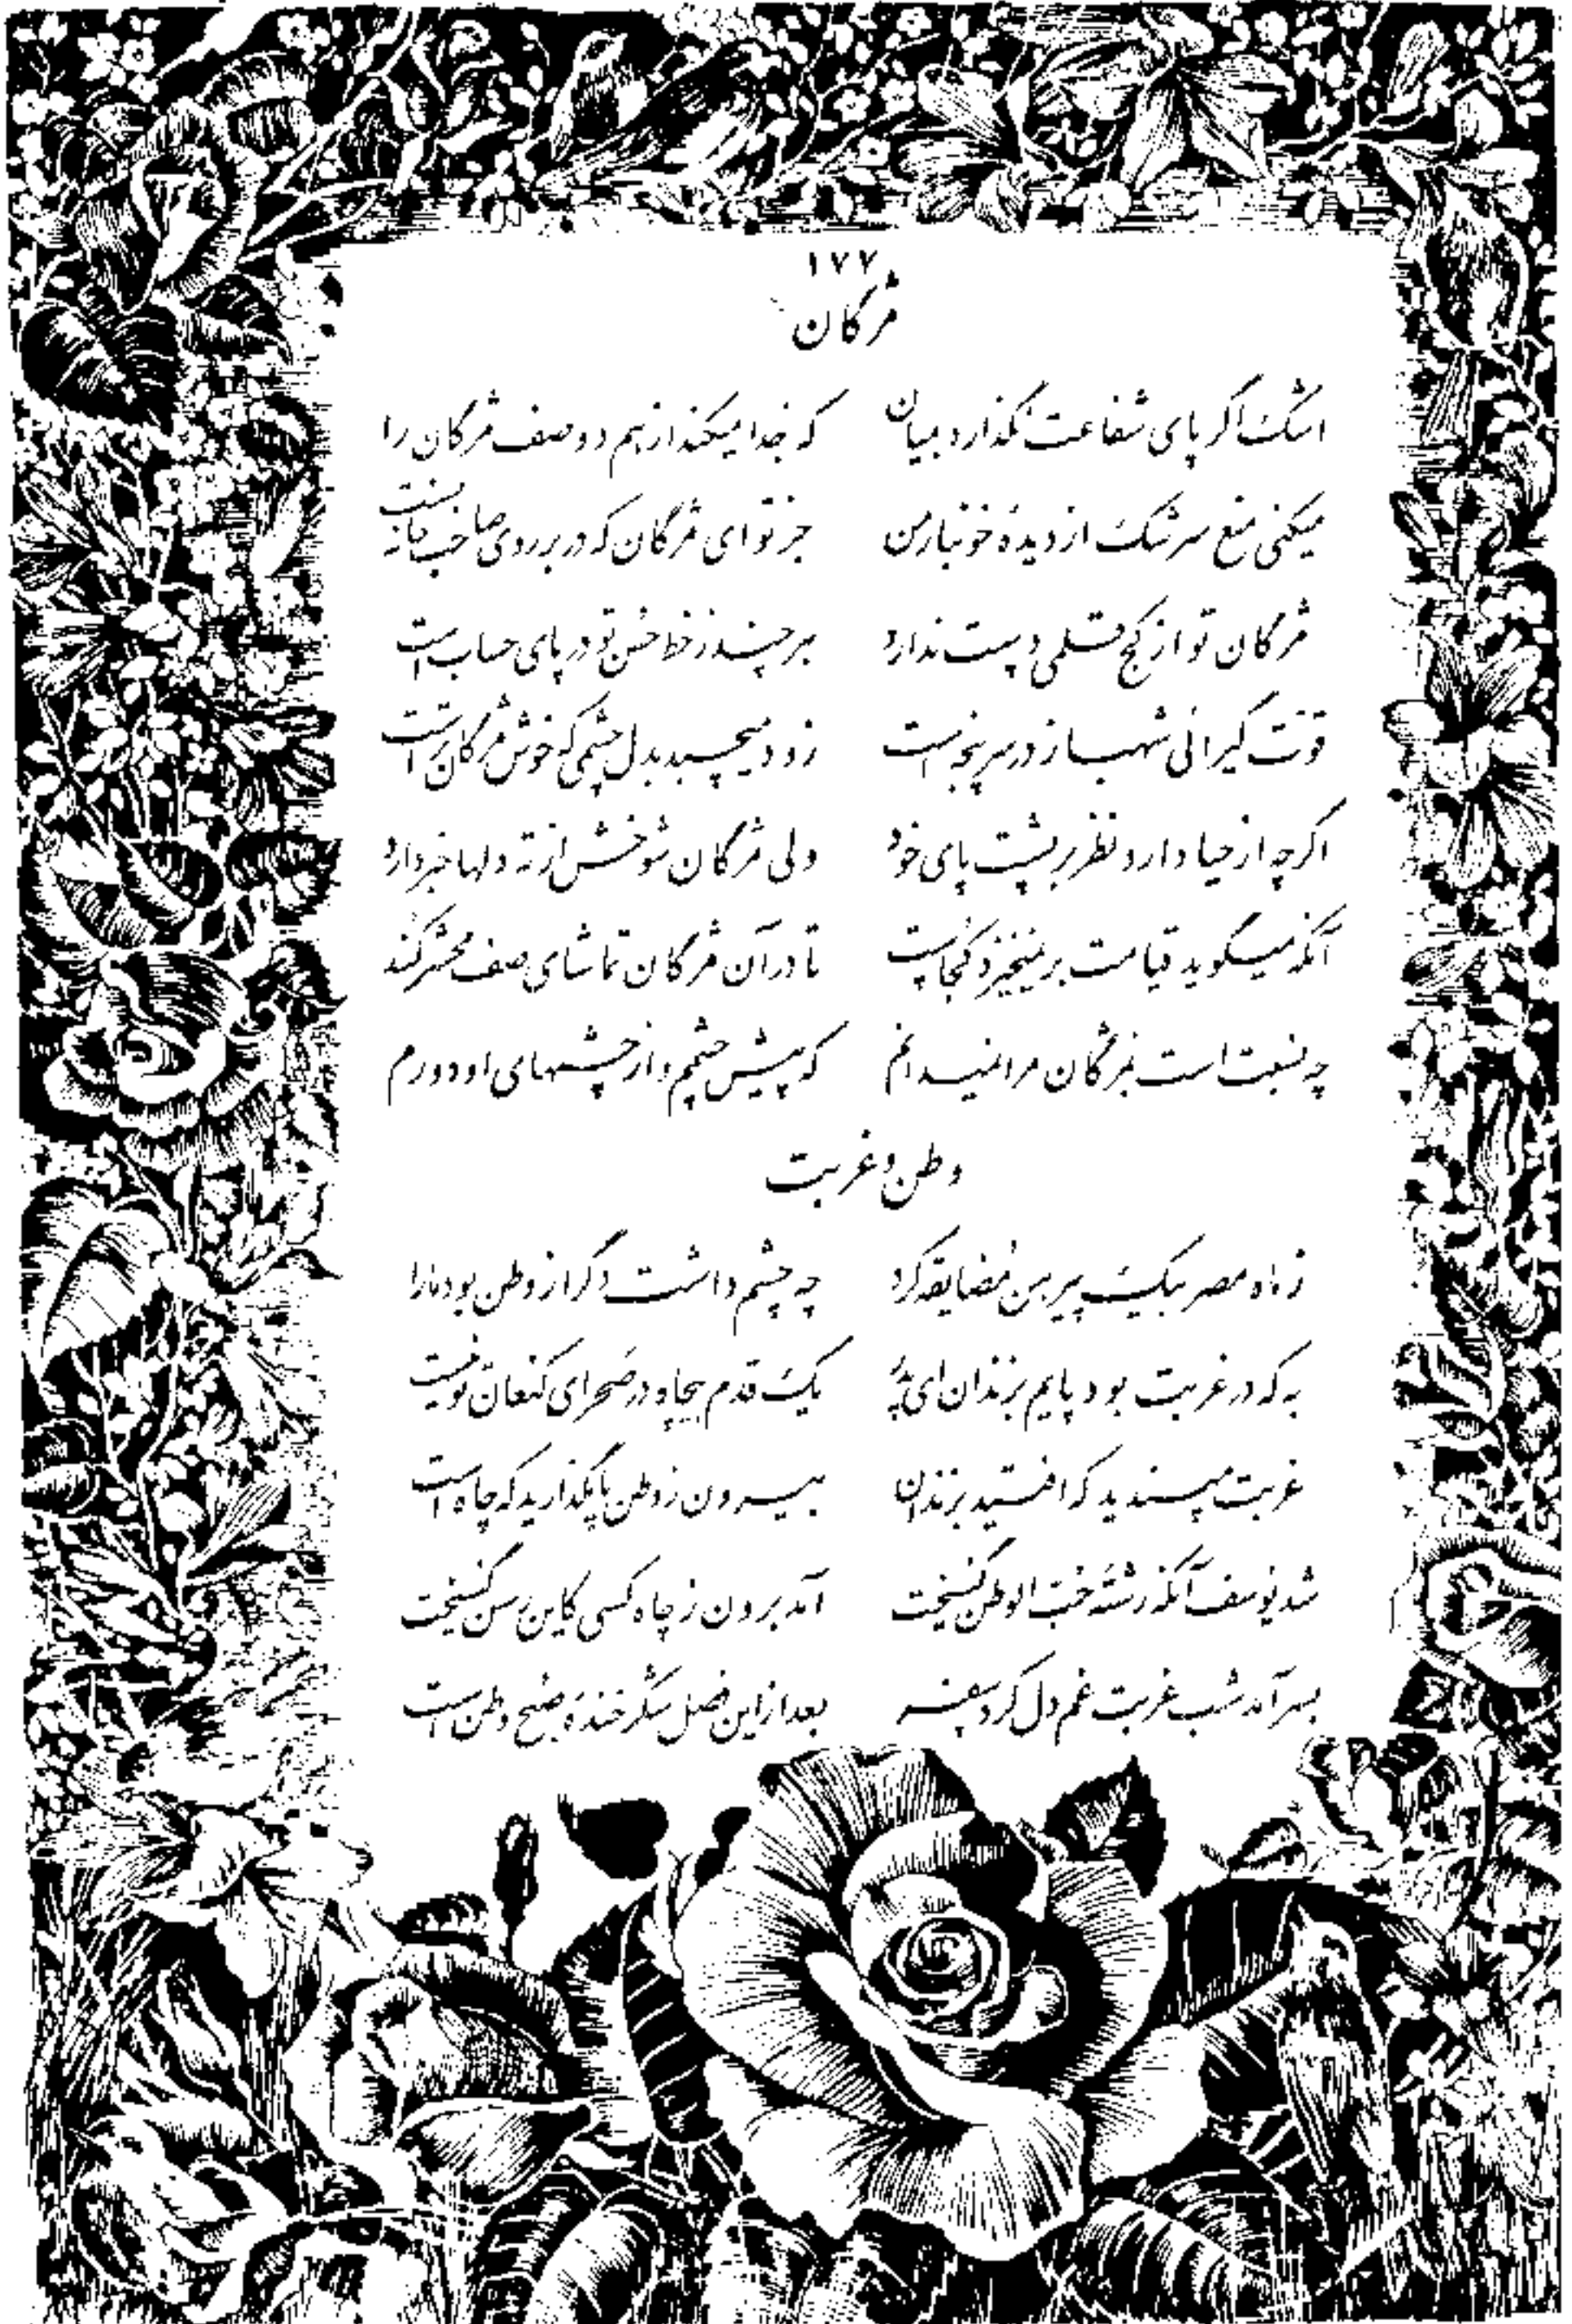 ۱۷۷
مژگان
اشک اگر پای شفاعت نگذارد بمیان که جدا میکند از هم دو صف مژگان را
میکنی منع سرشک از دیدهٔ خونبار من جز تو ای مژگان که در بر روی صاحب خانه بست
مژگان تو از کج قلمی دست ندارد هر چند ز خط حسن تو در پای حساب است
قوت گیرائی شهباز در سرپنجه است زود میچسبد بدل چشمی که خوش مژگان تر است
اگر چه از حیا دارد نظر بر پشت پای خود ولی مژگان شوخش از ته دلها خبر دارد
آنکه میگوید قیامت بر نمیخیزد کجاست تا در آن مژگان تماشای صف محشر کند
چه نسبت است بمژگان مرا نمیدانم که پیش چشم و از چشمهای او دورم
وطن و غربت
ز ماه مصر بیک پیرهن مضایقه کرد چه چشم داشت دگر از وطن بود ما را
به که در غربت بود پایم بزندان ای پدر یک قدم بیچاه در صحرای کنعان تو نیست
غربت مپسندید که افتید بزندان بیرون ز وطن پا مگذارید که چاه است
شد یوسف آنکه رشته حب الوطن گسیخت آمد برون ز چاه کسی کاین رسن گسیخت
بسر آمد شب غربت غم دل کرد سفر بعد از این فصل شکر خندهٔ صبح وطن است